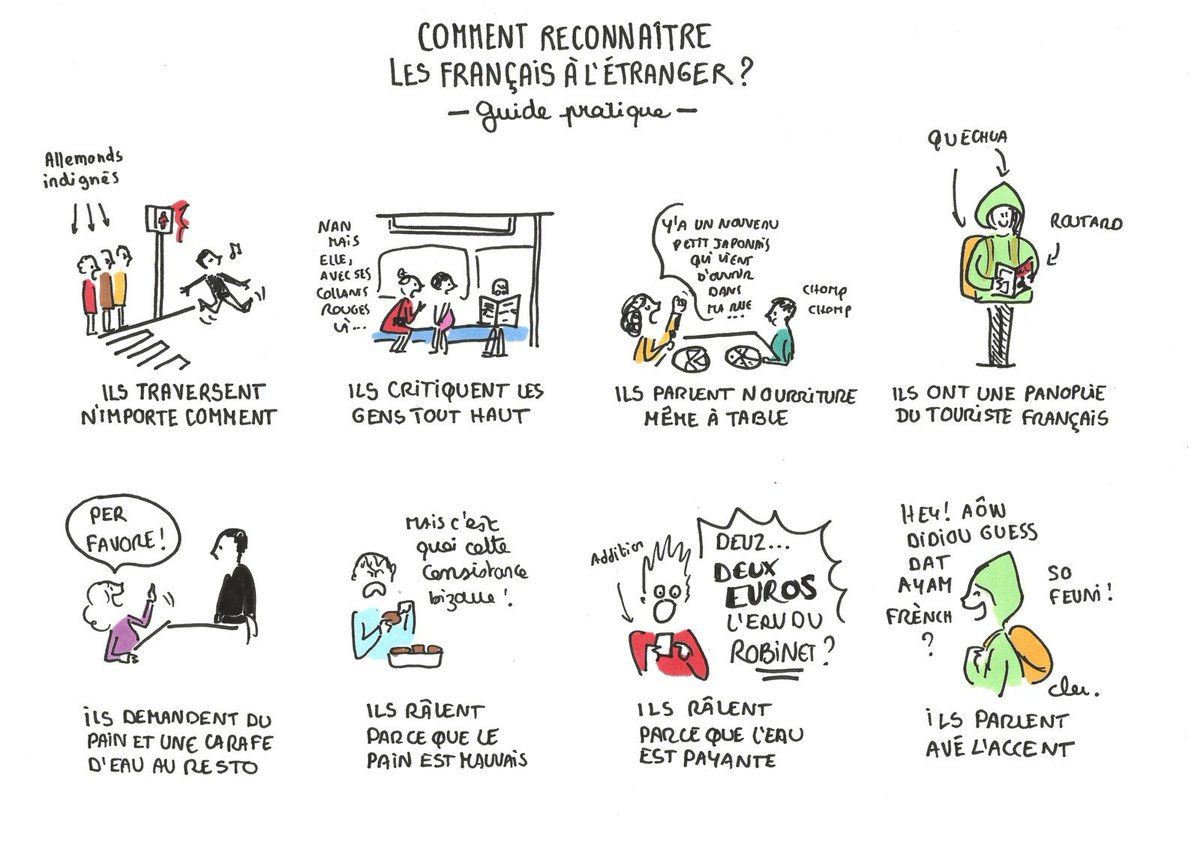 COMMENT RECONNAÎTRE
LES FRANÇAIS À L'ÉTRANGER ?
— guide pratique —
Allemands
indignés
ILS TRAVERSENT
N'IMPORTE COMMENT
NAN
MAIS
ELLE,
AVEC SES
COLLANTS
ROUGES
LÀ...
ILS CRITIQUENT LES
GENS TOUT HAUT
Y'A UN NOUVEAU
PETIT JAPONAIS
QUI VIENT
D'OUVRIR
DANS
MA RUE
...
CHOMP
CHOMP
ILS PARLENT NOURRITURE
MÊME À TABLE
QUECHUA
ROUTARD
ILS ONT UNE PANOPLIE
DU TOURISTE FRANÇAIS
PER
FAVORE !
ILS DEMANDENT DU
PAIN ET UNE CARAFE
D'EAU AU RESTO
MAIS c'est
quoi cette
consistance
bizarre !
ILS RÂLENT
PARCE QUE LE
PAIN EST MAUVAIS
Addition
DEUZ...
DEUX
EUROS
L'EAU DU
ROBINET ?
ILS RÂLENT
PARCE QUE L'EAU
EST PAYANTE
HEY ! AÔW
DIDIOU GUESS
DAT
AYAM
FRÈNCH
?
SO
FEUNI !
cler.
ILS PARLENT
AVÉ L'ACCENT